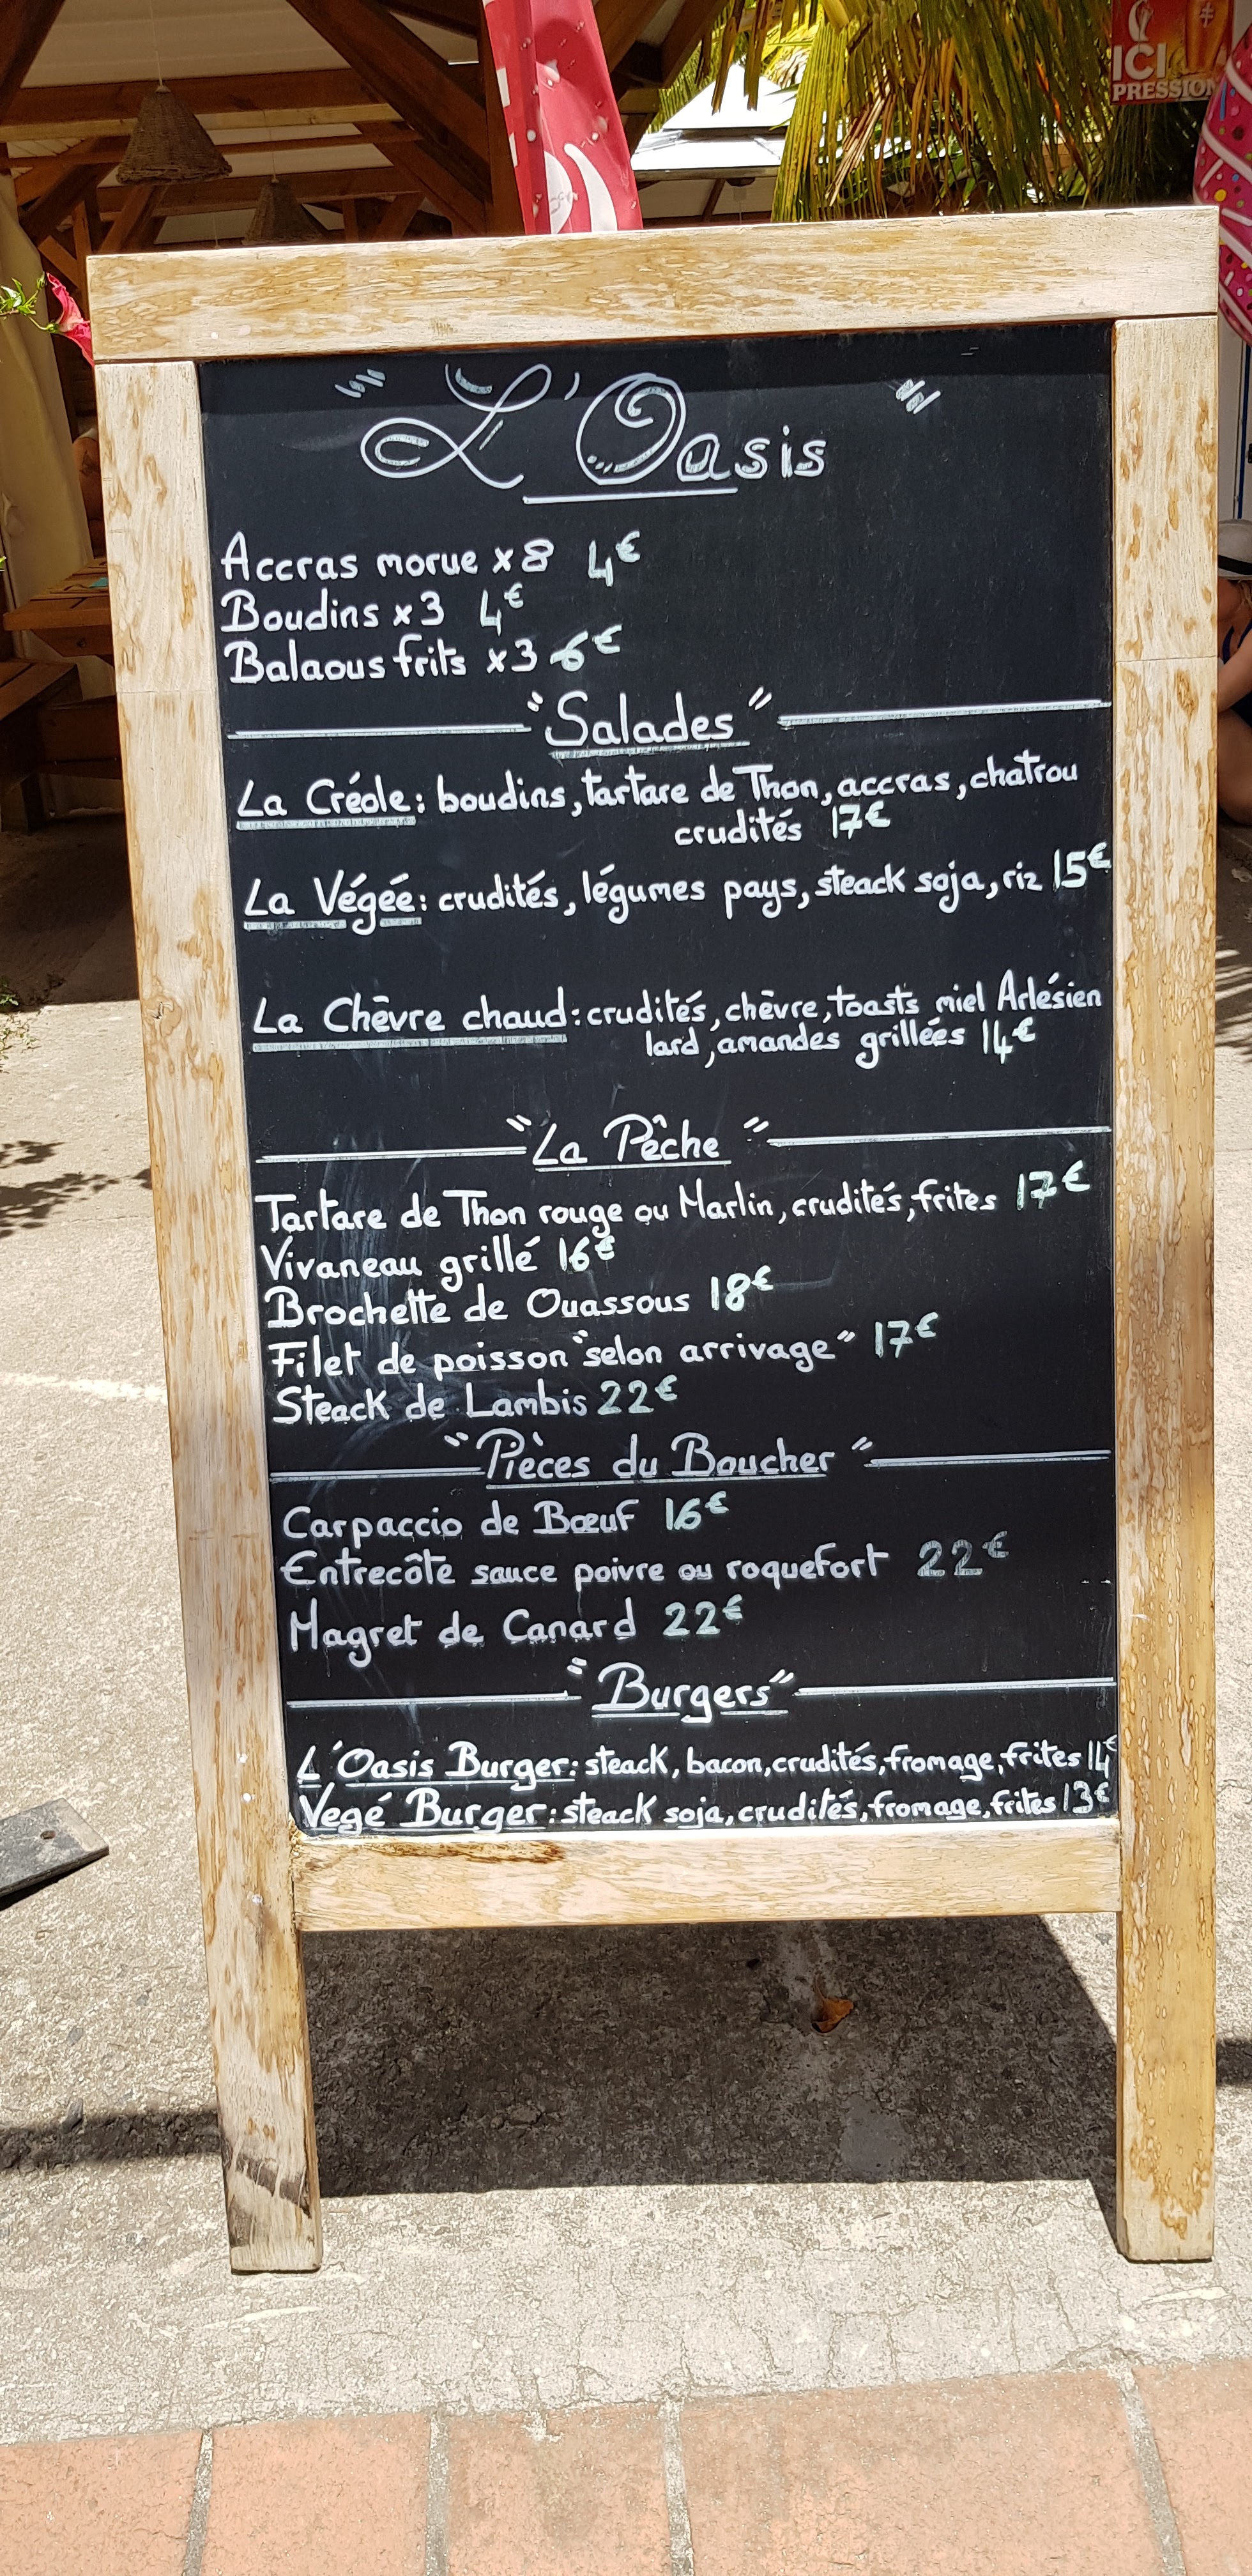 ICI
PRESSION
"L'Oasis"
Accras morue x 8 4€
Boudins x 3 4€
Balaous frits x 3 6€
"Salades"
La Créole : boudins, tartare de Thon, accras, chatrou
crudités 17€
La Végée : crudités, légumes pays, steack soja, riz 15€
La Chèvre chaud : crudités, chèvre, toasts miel Arlésien
lard, amandes grillées 14€
"La Pêche"
Tartare de Thon rouge ou Marlin, crudités, frites 17€
Vivaneau grillé 16€
Brochette de Ouassous 18€
Filet de poisson "selon arrivage" 17€
Steack de Lambis 22€
"Pièces du Boucher"
Carpaccio de Bœuf 16€
Entrecôte sauce poivre ou roquefort 22€
Magret de Canard 22€
"Burgers"
L'Oasis Burger : steack, bacon, crudités, fromage, frites 14€
Vegé Burger : steack soja, crudités, fromage, frites 13€